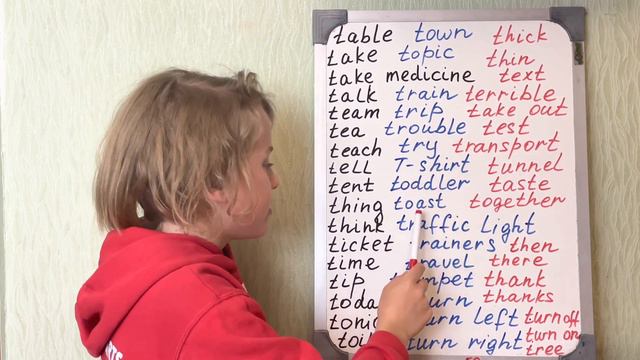 table town thick
take topic thin
take medicine text
talk train terrible
team trip take out
tea trouble test
teach try transport
tell T-shirt tunnel
tent toddler taste
thing toast together
think traffic light
ticket trainers then
time travel there
tip thank
thanks
turn left turn off
turn right turn on
tree